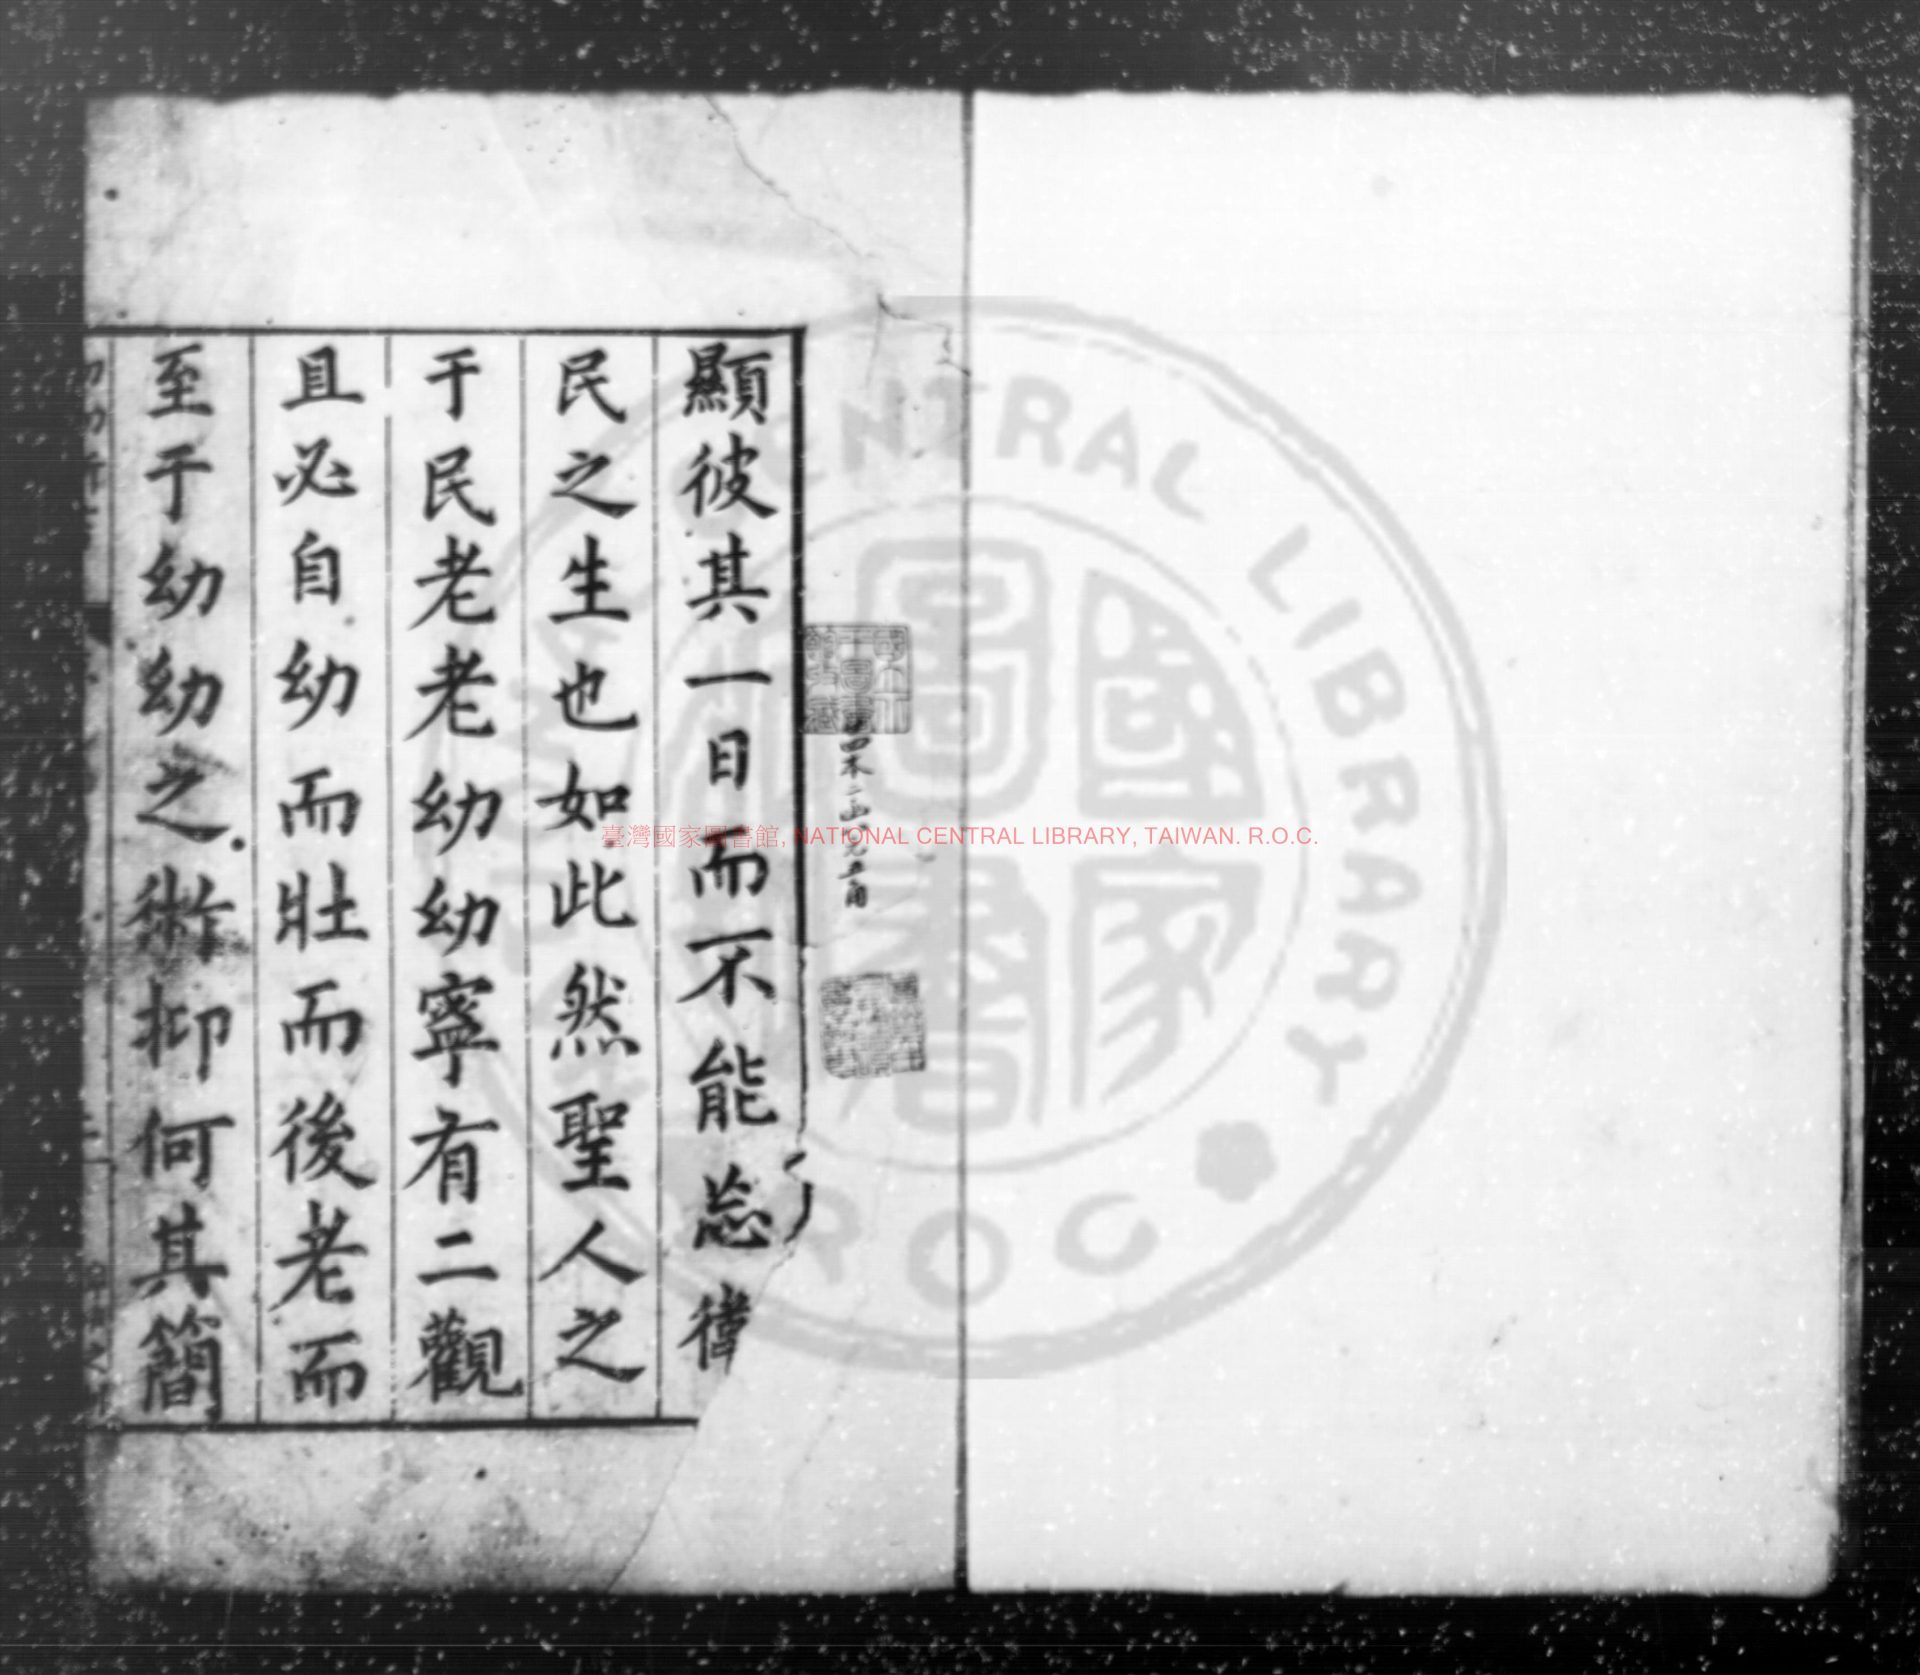 顯彼其一日而不能忘
民之生也如此然聖人之
于民老老幼幼寧有二觀
且必自幼而壯而後老而
至于幼幼之術抑何其簡
臺灣國家圖書館, NATIONAL CENTRAL LIBRARY, TAIWAN. R.O.C.
CENTRAL LIBRARY
ROC
國家圖書